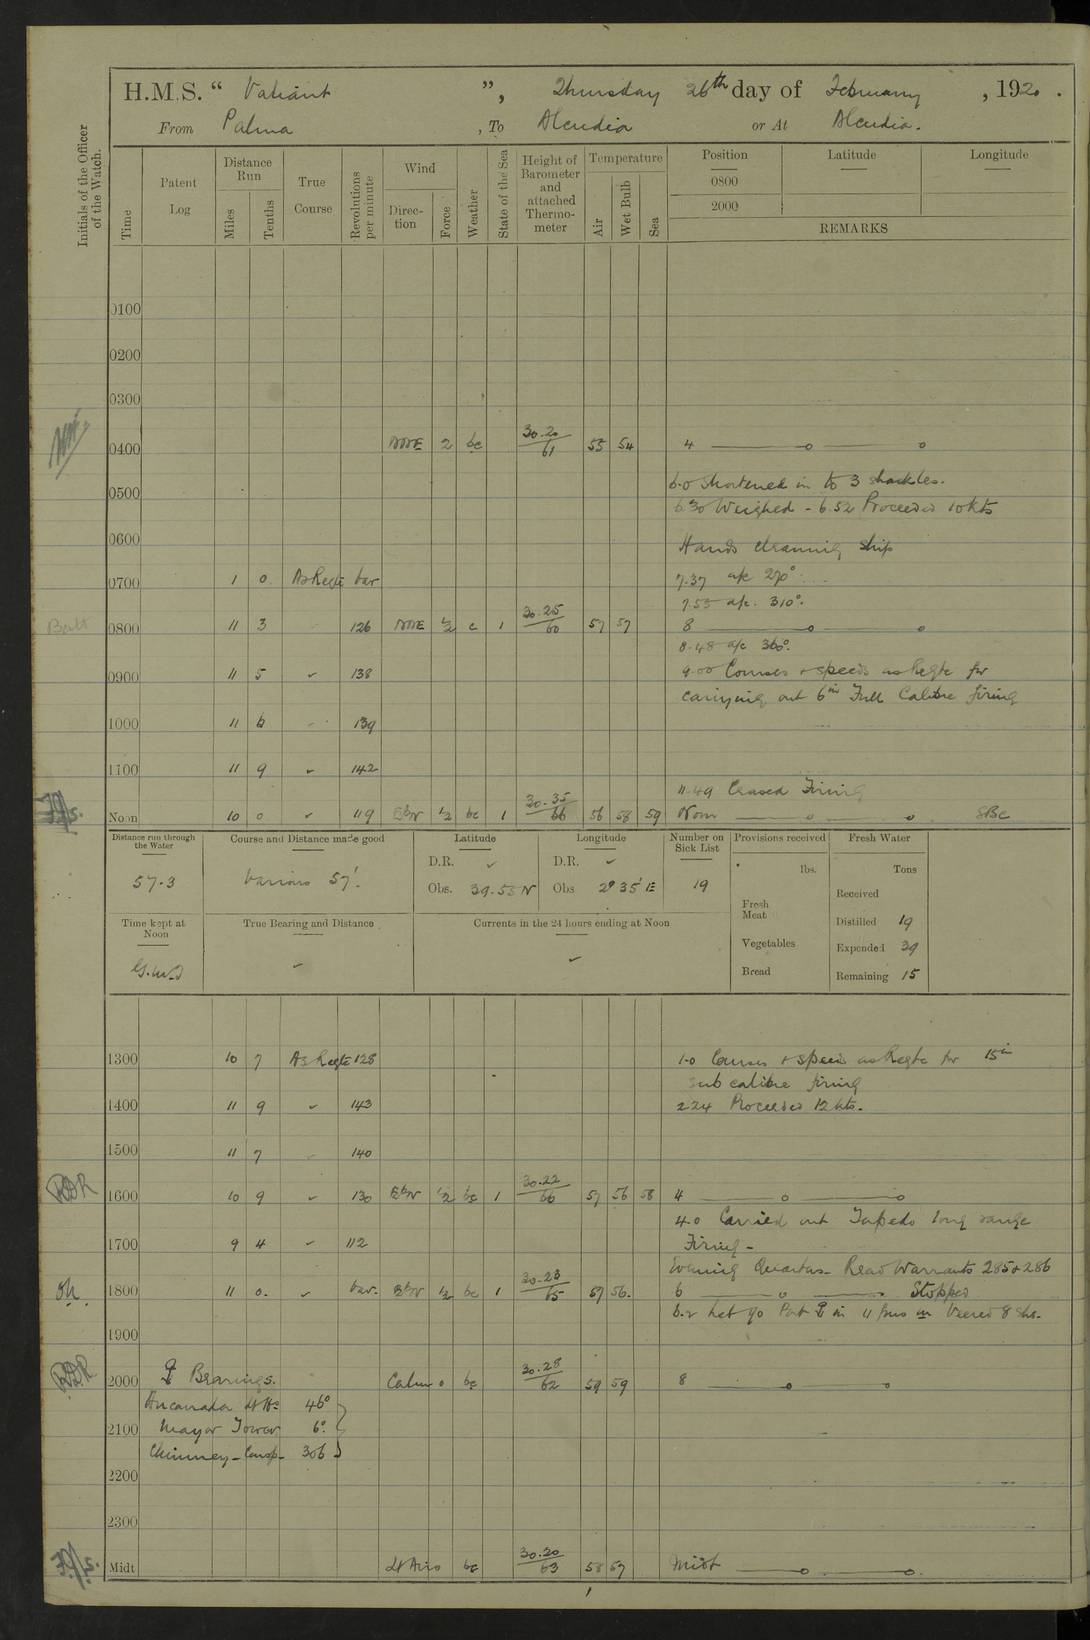 H.M.S. “ Valiant ”, Thursday 26th day of February, 1920.
From Palma, To Alcudia or At Alcudia.
Initials of the Officer of the Watch.
Time
Patent Log
Distance Run
Miles
Tenths
True Course
Revolutions per minute
Wind
Direction
Force
Weather
State of the Sea
Height of Barometer and attached Thermometer
Temperature
Air
Wet Bulb
Sea
Position Latitude Longitude
0800
2000
REMARKS
0100
0200
0300
0400 NNE 2 bc 30.20/61 55 54 4
6.0 Shortened in to 3 shackles.
0500
6.30 Weighed - 6.52 Proceeded 10 kts
0600
Hands cleaning ship
0700 1 0 As Reqte Var 7.37 a/c 270°
7.55 a/c. 310°.
0800 11 3 126 NNE 1/2 c 1 30.25/60 57 57 8
8.48 a/c 360°.
0900 11 5 138 9.00 Courses & speeds as Reqte for
carrying out 6in Full Calibre firing
1000 11 6 139
1100 11 9 142
11.49 Ceased Firing
Noon 10 0 119 EbN 1/2 bc 1 30.35/66 56 58 59 Noon
Distance run through the Water
57.3
Course and Distance made good
Various 57'.
Latitude
D.R.
Obs. 39.55 N
Longitude
D.R.
Obs 2° 35' E
Number on Sick List
19
Provisions received
lbs.
Fresh Meat
Vegetables
Bread
Fresh Water
Tons
Received
Distilled 19
Expended 39
Remaining 15
Time kept at Noon
True Bearing and Distance
Currents in the 24 hours ending at Noon
1300 10 7 As Reqte 128 1.0 Courses & speed as Reqte for 15in
sub calibre firing
1400 11 9 143 2.24 Proceeded 12 kts.
1500 11 7 140
RDR 1600 10 9 130 EbN 1/2 bc 1 30.22/66 57 56 58 4
4.0 Carried out Torpedo long range
1700 9 4 112 Firing -
Evening Quarters. Read Warrants 285 & 286
1800 11 0. Var. EbN 1/2 bc 1 30.23/65 57 56. 6 Stopped
6.2 Let go Port in 11 fms Veered 8 shs.
1900
RDR 2000 Bearings. Calm 0 bc 30.28/62 59 59 8
Lt Ho 46°
2100 Mayor Tower 6°
Chimney - Consp - 306
2200
2300
Midt Lt Airs bc 30.20/63 58 57 Midt